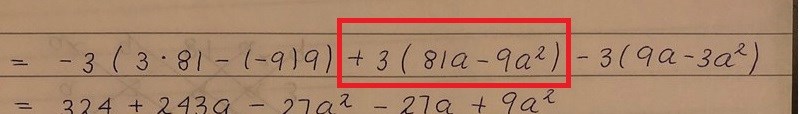 = -3 ( 3 · 81 - (-9)9) + 3 ( 81a - 9a²) - 3(9a - 3a²)
= 324 + 243a - 27a² - 27a + 9a²